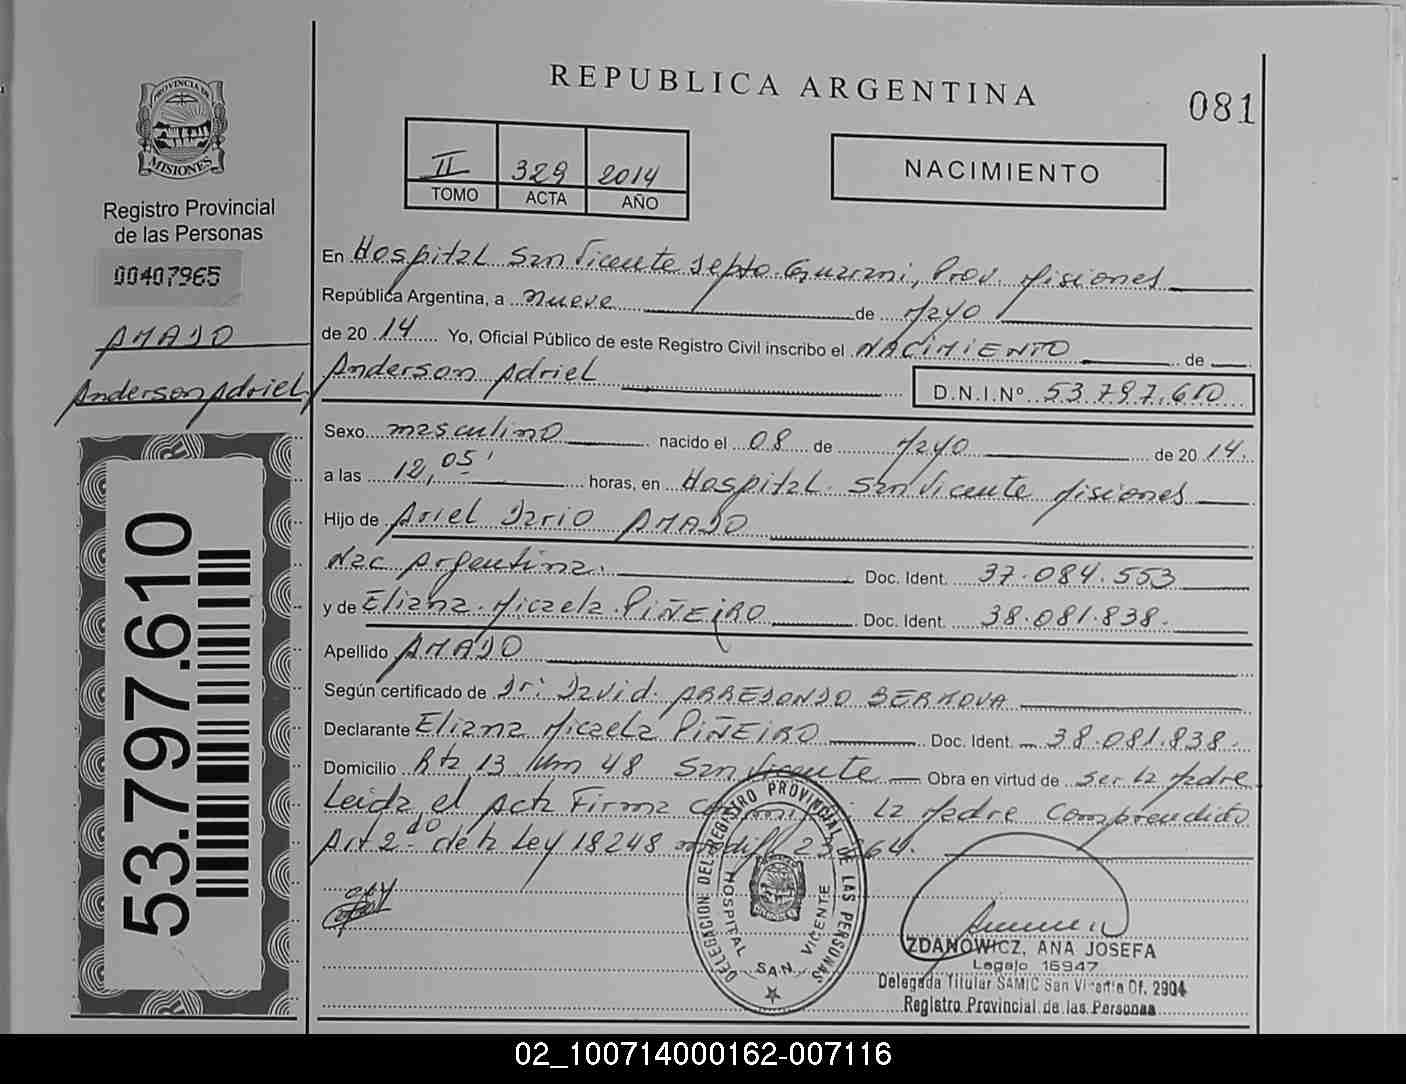 REPUBLICA ARGENTINA
081
PROVINCIA DE
MISIONES
Registro Provincial
de las Personas
00407965
AMADO
Anderson Adriel
53.797.610
II 329 2014
TOMO ACTA AÑO
NACIMIENTO
En Hospital San Vicente Depto. Guarani, Prov. Misiones
República Argentina, a nueve de Mayo
de 20 14 Yo, Oficial Público de este Registro Civil inscribo el NACIMIENTO de
Anderson Adriel D.N.I.Nº 53.797.610
Sexo masculino nacido el 08 de Mayo de 20 14.
a las 12,05' horas, en Hospital San Vicente Misiones
Hijo de Ariel Dario AMADO
Nac Argentina. Doc. Ident. 37.084.553
y de Eliana Micaela PIÑEIRO Doc. Ident. 38.081.838.
Apellido AMADO
Según certificado de Dr: David ARREDONDO BERMOVA
Declarante Eliana Micaela PIÑEIRO Doc. Ident. 38.081.838.
Domicilio Rta 13 Km 48 San Vicente Obra en virtud de ser la Madre
Leida el Acta Firma la Madre Comprendido
Art 2do de la Ley 18248
DELEGACION DEL REGISTRO PROVINCIAL DE LAS PERSONAS
HOSPITAL SAN VICENTE
ZDANOWICZ, ANA JOSEFA
Legajo 16947
Delegada Titular SAMIC San Vicente Of. 2904
Registro Provincial de las Personas
02_100714000162-007116